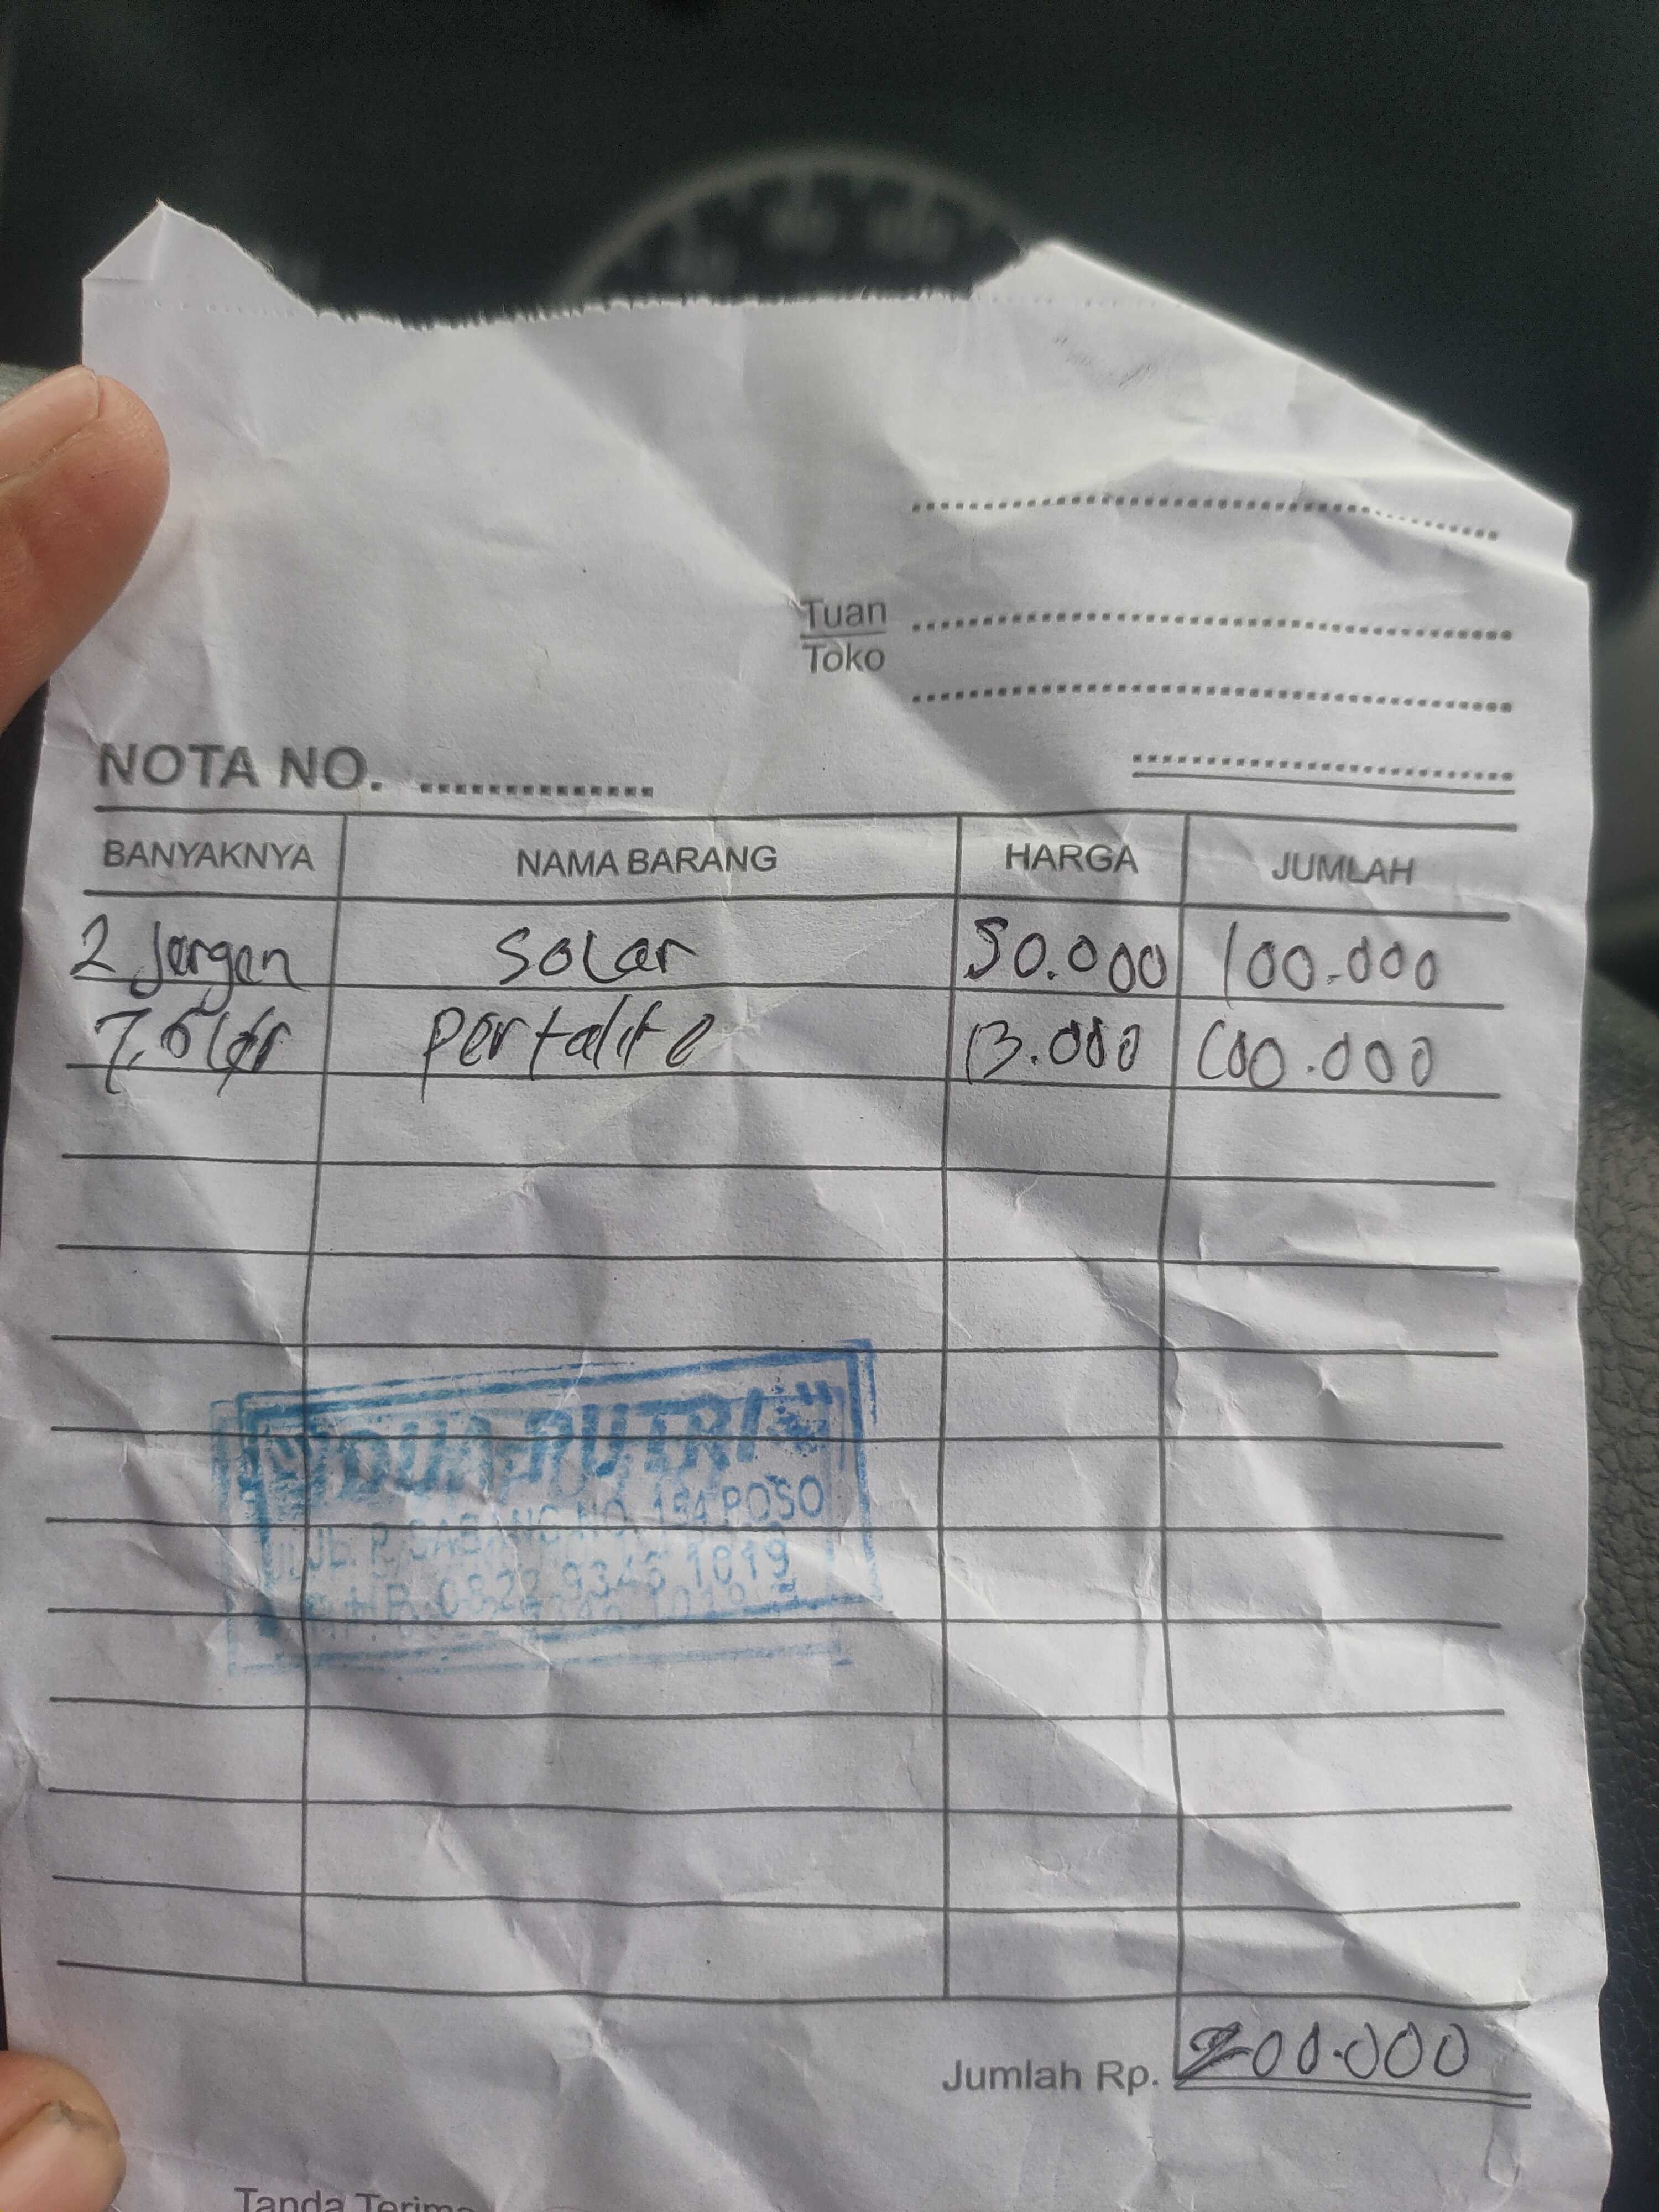 Tuan
Toko
NOTA NO. ..............
BANYAKNYA NAMA BARANG HARGA JUMLAH
2 Jergen Solar 50.000 100.000
7,5 ltr pertalite 13.000 100.000
DUA PUTRI
JL. P. SABANG NO. POSO
HP. 0822 9345 1019
Jumlah Rp. 200.000
Tanda Terima